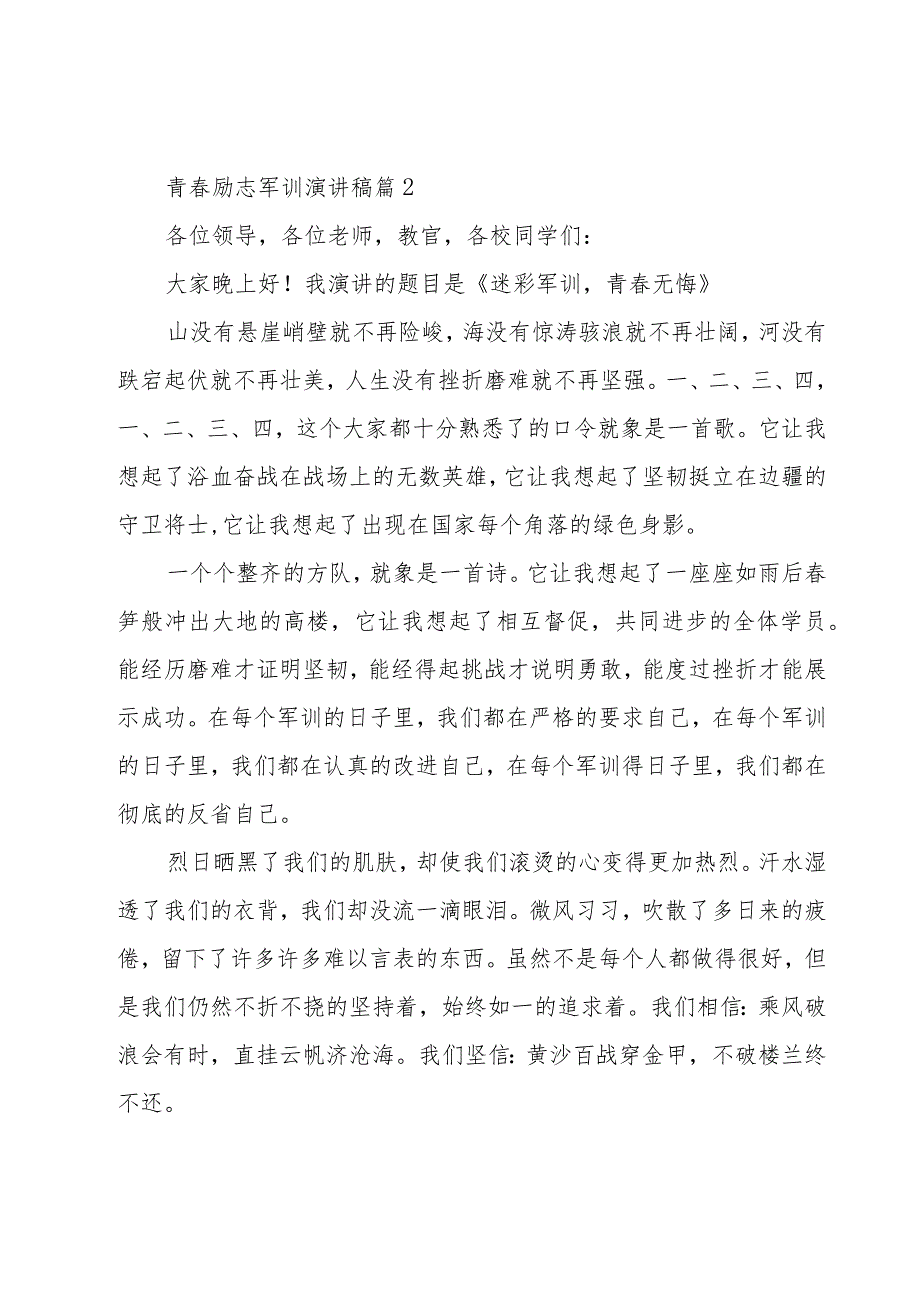 青春励志军训演讲稿篇2
各位领导，各位老师，教官，各校同学们：
大家晚上好！我演讲的题目是《迷彩军训，青春无悔》
山没有悬崖峭壁就不再险峻，海没有惊涛骇浪就不再壮阔，河没有
跌宕起伏就不再壮美，人生没有挫折磨难就不再坚强。一、二、三、四，
一、二、三、四，这个大家都十分熟悉了的口令就象是一首歌。它让我
想起了浴血奋战在战场上的无数英雄，它让我想起了坚韧挺立在边疆的
守卫将士,它让我想起了出现在国家每个角落的绿色身影。
一个个整齐的方队，就象是一首诗。它让我想起了一座座如雨后春
笋般冲出大地的高楼，它让我想起了相互督促，共同进步的全体学员。
能经历磨难才证明坚韧，能经得起挑战才说明勇敢，能度过挫折才能展
示成功。在每个军训的日子里，我们都在严格的要求自己，在每个军训
的日子里，我们都在认真的改进自己，在每个军训得日子里，我们都在
彻底的反省自己。
烈日晒黑了我们的肌肤，却使我们滚烫的心变得更加热烈。汗水湿
透了我们的衣背，我们却没流一滴眼泪。微风习习，吹散了多日来的疲
倦，留下了许多许多难以言表的东西。虽然不是每个人都做得很好，但
是我们仍然不折不挠的坚持着，始终如一的追求着。我们相信：乘风破
浪会有时，直挂云帆济沧海。我们坚信：黄沙百战穿金甲，不破楼兰终
不还。